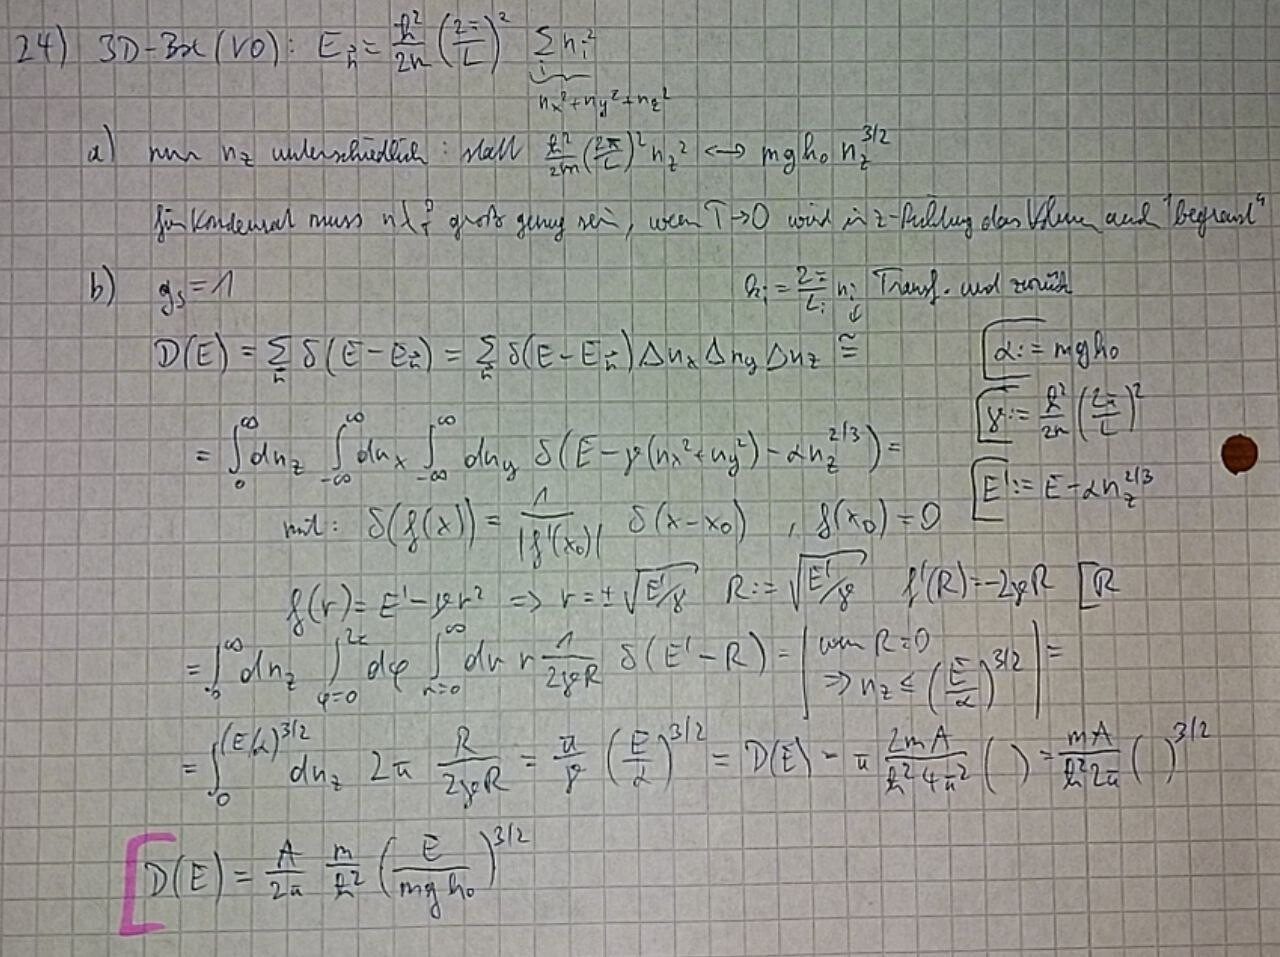 24) 3D-Box (VO): E_n⃗ = ℏ²/2m (2π/L)² Σ_i n_i²
n_x²+n_y²+n_z²
a) nur n_z unterschiedlich: statt ℏ²/2m (2π/L)² n_z² ↔ mgh₀ n_z^{3/2}
für Kondensat muss nλ_T^3 groß genug sein, wenn T→0 wird in z-Richtung das Volumen auch "begrenzt"
b) g_s = 1 k_i = 2π/L_i n_i Transf. und zurück
D(E) = Σ_n⃗ δ(E−E_n⃗) = Σ_n⃗ δ(E−E_n⃗) Δn_x Δn_y Δn_z ≅ [α := mgh₀
[γ := ℏ²/2m (2π/L)²
= ∫_0^∞ dn_z ∫_{-∞}^∞ dn_x ∫_{-∞}^∞ dn_y δ(E − γ(n_x²+n_y²) − αn_z^{2/3}) = [E' := E − αn_z^{2/3}
mit: δ(f(x)) = 1/|f'(x₀)| δ(x−x₀) , f(x₀) = 0
f(r) = E' − γr² ⇒ r = ±√(E'/γ) R := √(E'/γ) f'(R) = −2γR [R
= ∫_0^∞ dn_z ∫_{φ=0}^{2π} dφ ∫_{r=0}^∞ dr r 1/2γR δ(E'−R) = | wenn R=0 ⇒ n_z ≤ (E/α)^{3/2} | =
= ∫_0^{(E/α)^{3/2}} dn_z 2π R/2γR = π/γ (E/α)^{3/2} = D(E) = π 2mA/ℏ²4π² ( ) = mA/ℏ²2π ( )^{3/2}
[D(E) = A/2π m/ℏ² (E/mgh₀)^{3/2}